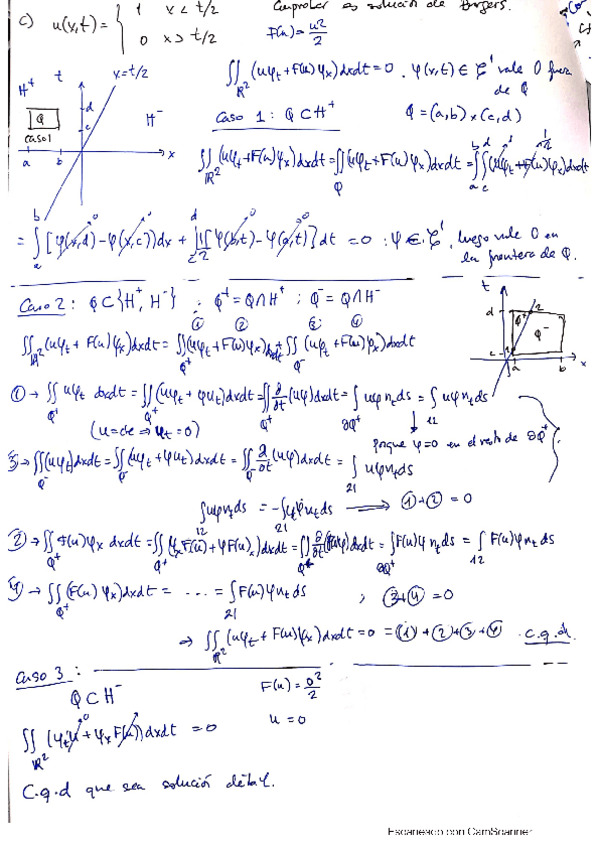 c) u(x,t) = { 1 x < t/2
0 x > t/2
Comprobar es solución de Burgers.
F(u) = u²/2
∬_{ℝ²} (uφ_t + F(u)φ_x) dxdt = 0 . φ(x,t) ∈ C¹ vale 0 fuera de Q
H⁺ t x = t/2
H⁻
Q
caso 1
d
c
a b x
Caso 1: Q ⊂ H⁺ Q = (a,b) × (c,d)
∬_{ℝ²} (uφ_t + F(u)φ_x) dxdt = ∬_Q (uφ_t + F(u)φ_x) dxdt = ∫_a^b ∫_c^d (uφ_t + F(u)φ_x) dxdt
= ∫_a^b [φ(x,d) - φ(x,c)] dx + ∫_c^d 1/2 [φ(b,t) - φ(a,t)] dt = 0 : φ ∈ C¹, luego vale 0 en la frontera de Q.
Caso 2: Q ⊂ {H⁺, H⁻} ; Q⁺ = Q∩H⁺ ; Q⁻ = Q∩H⁻
① ② ③ ④
∬_{ℝ²} (uφ_t + F(u)φ_x) dxdt = ∬_{Q⁺} (uφ_t + F(u)φ_x) dxdt + ∬_{Q⁻} (uφ_t + F(u)φ_x) dxdt
t
d Q⁺ 2
Q⁻
c 1
a b x
① → ∬_{Q⁺} uφ_t dxdt = ∬_{Q⁺} (uφ_t + φu_t) dxdt = ∬_{Q⁺} ∂/∂t (uφ) dxdt = ∫_{∂Q⁺} uφ n_t ds = ∫_{12} uφ n_t ds
(u = cte ⇒ u_t = 0)
porque φ = 0 en el resto de ∂Q⁺
3 → ∬_{Q⁻} (uφ_t) dxdt = ∬_{Q⁻} (uφ_t + φu_t) dxdt = ∬_{Q⁻} ∂/∂t (uφ) dxdt = ∫_{21} uφ n_t ds
∫_{12} uφ n_t ds = - ∫_{21} uφ n_t ds → ① + ② = 0
② → ∬_{Q⁺} F(u)φ_x dxdt = ∬_{Q⁺} (φ_x F(u) + φF(u)_x) dxdt = ∬_{Q⁺} ∂/∂t (Fφ) dxdt = ∫_{∂Q⁺} F(u)φ n_t ds = ∫_{12} F(u)φ n_t ds
④ → ∬_{Q⁺} (F(u)φ_x) dxdt = ... = ∫_{21} F(u)φ n_t ds ; ③ + ④ = 0
⇒ ∬_{ℝ²} (uφ_t + F(u)φ_x) dxdt = 0 = ① + ② + ③ + ④ c.q.d.
Caso 3:
Q ⊂ H⁻ F(u) = 0²/2
∬_{ℝ²} (φ_t u + φ_x F(u)) dxdt = 0 u = 0
C.q.d que sea solución débil.
Escaneado con CamScanner